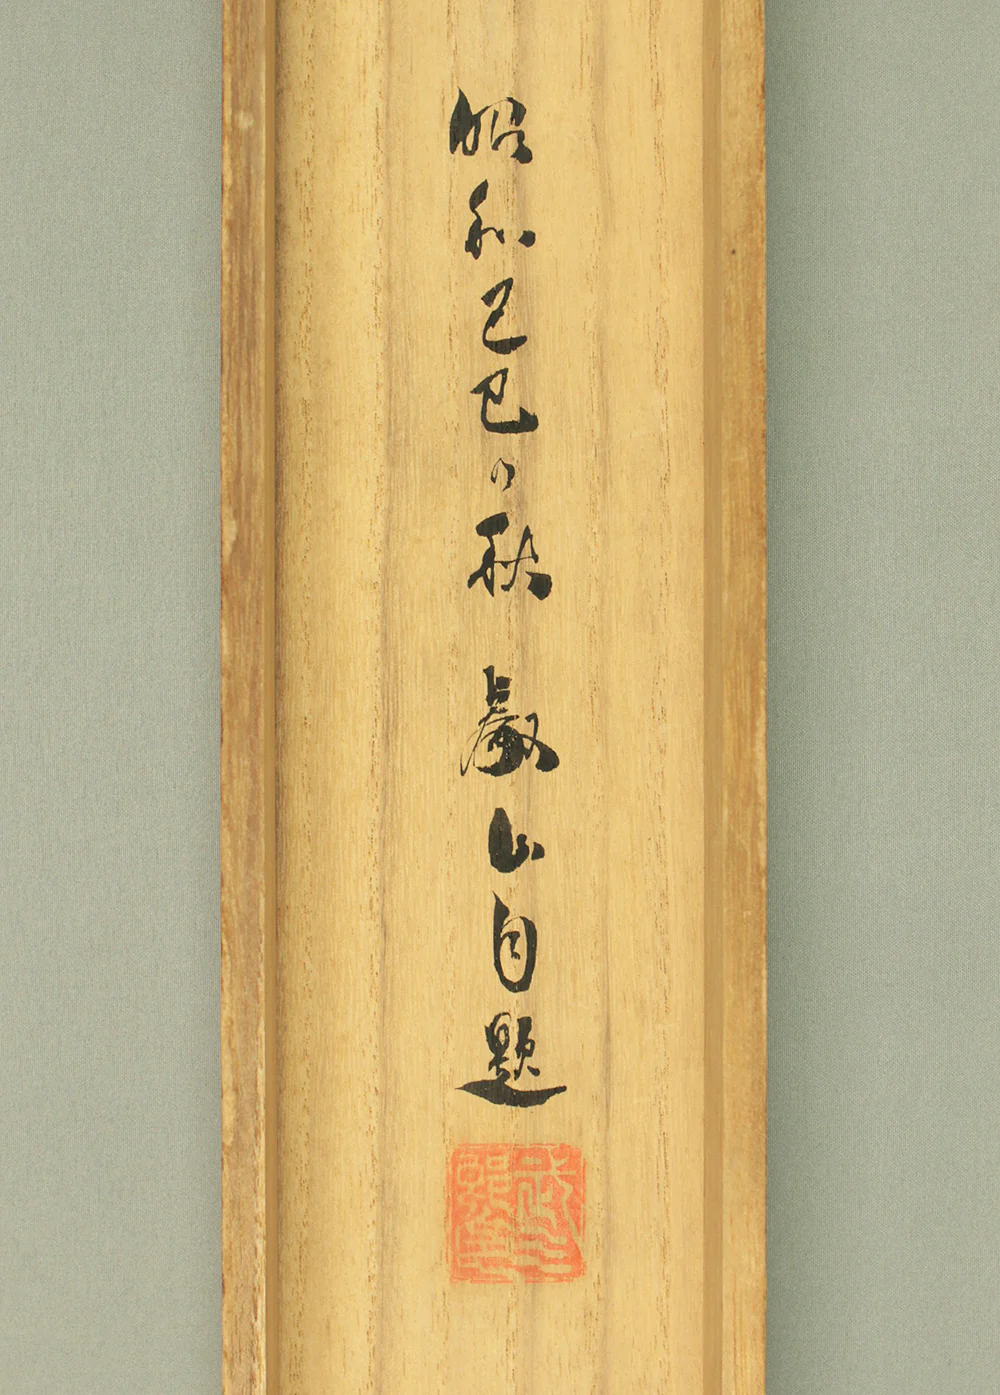 昭和己巳の秋 巌山自題